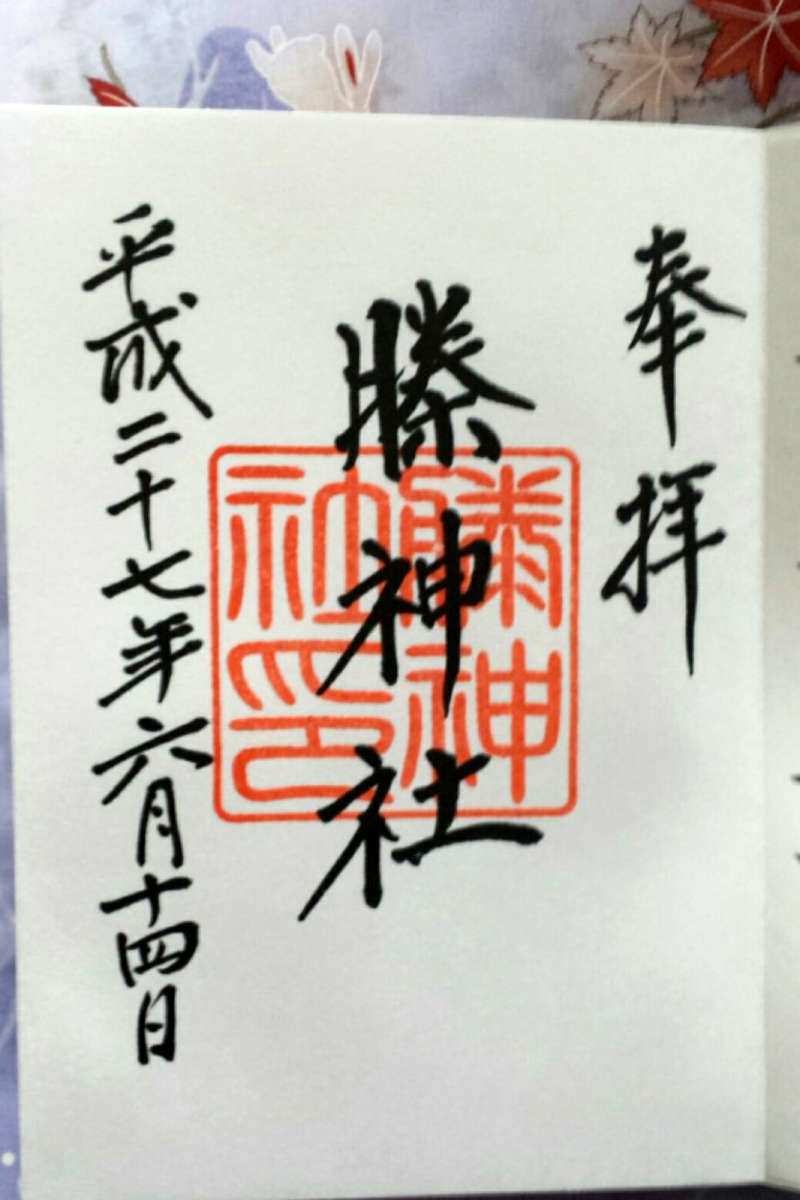 奉拝
榺神社
平成二十七年六月十四日
榺神
社印